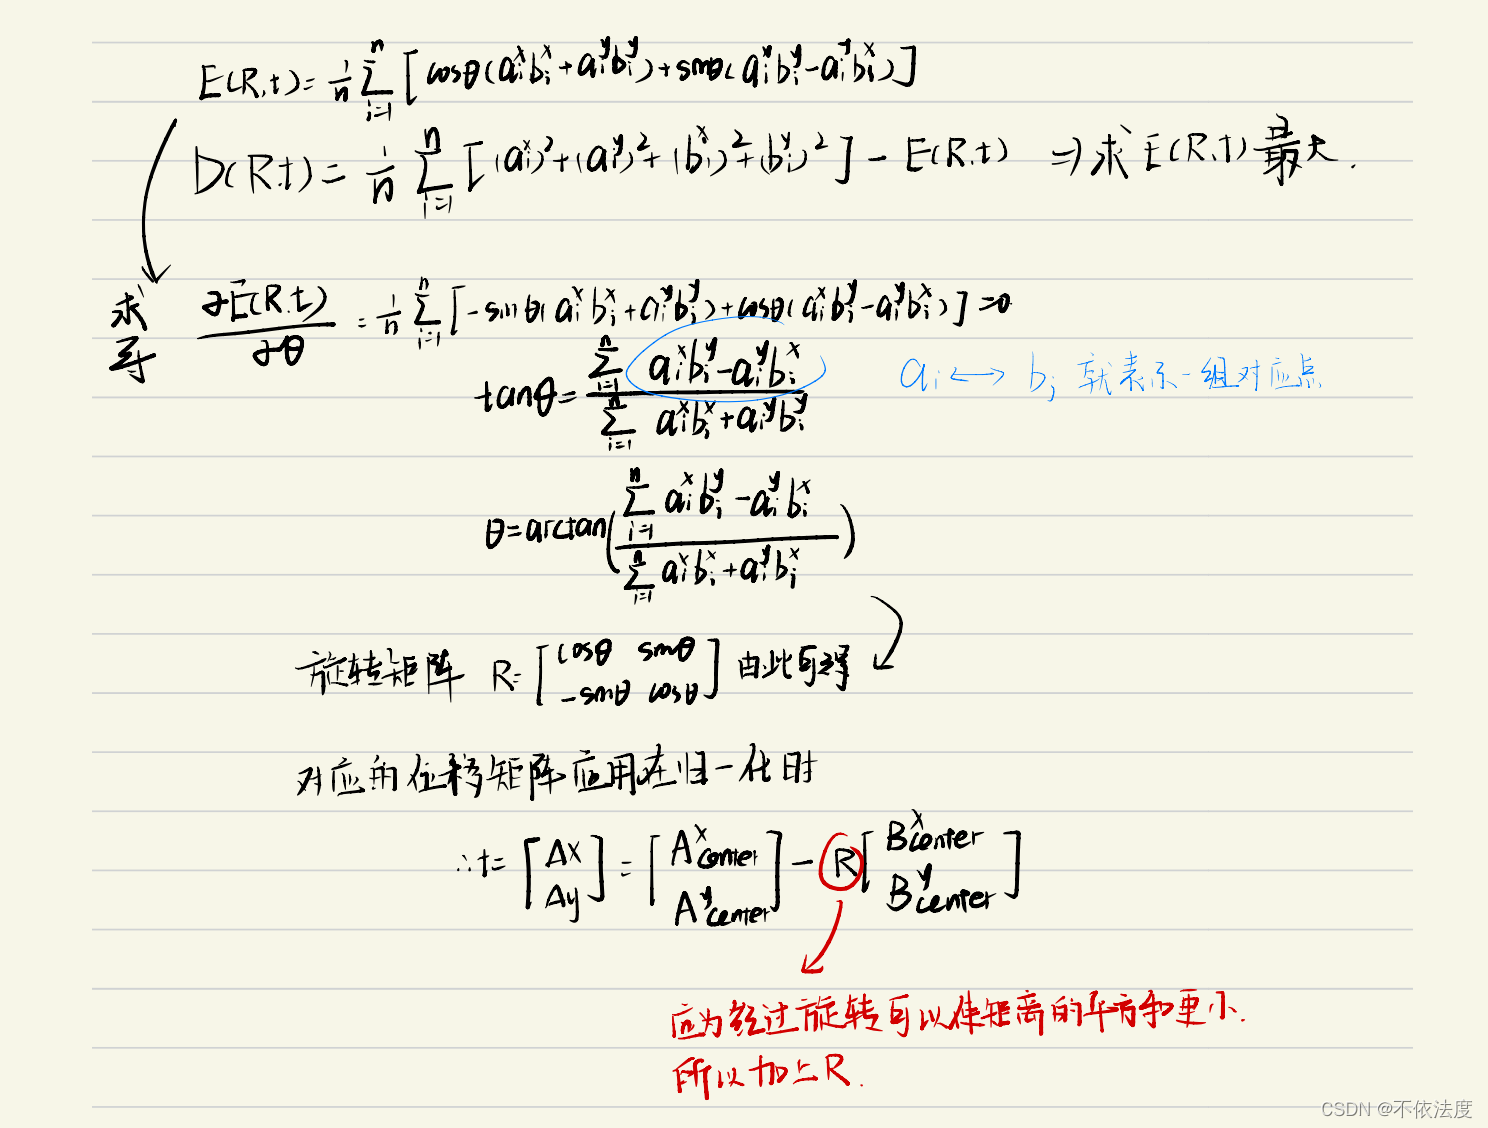 E(R,t)=1/n ∑_{i=1}^{n} [cosθ(a_i^x b_i^x + a_i^y b_i^y)+sinθ(a_i^x b_i^y - a_i^y b_i^x)]
D(R,t)=1/n ∑_{i=1}^{n} [(a_i^x)^2+(a_i^y)^2+(b_i^x)^2+(b_i^y)^2] - E(R,t) ⇒求E(R,t)最大.
求导 ∂E(R,t)/∂θ = 1/n ∑_{i=1}^{n} [-sinθ(a_i^x b_i^x + a_i^y b_i^y)+cosθ(a_i^x b_i^y - a_i^y b_i^x)]=0
tanθ= (∑_{i=1}^{n} a_i^x b_i^y - a_i^y b_i^x)/(∑_{i=1}^{n} a_i^x b_i^x + a_i^y b_i^y)
a_i ↔ b_i 就表示一组对应点
θ=arctan((∑_{i=1}^{n} a_i^x b_i^y - a_i^y b_i^x)/(∑_{i=1}^{n} a_i^x b_i^x + a_i^y b_i^x))
旋转矩阵 R=[cosθ sinθ; -sinθ cosθ] 由此可得
对应的位移矩阵应用在归一化时
∴t=[Δx; Δy]=[A^x_center; A^y_center] - R[B^x_center; B^y_center]
应为经过旋转可以使距离的平方和更小.
所以加上R.
CSDN @不依法度